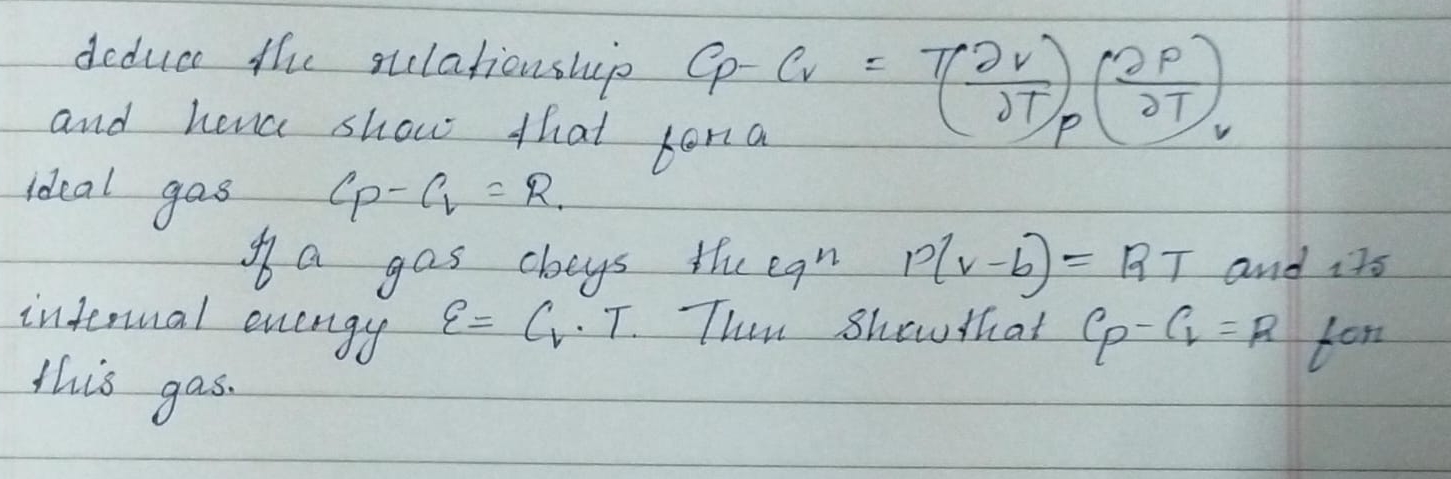 deduce the relationship Cp - Cv = T(∂v/∂T)p (∂P/∂T)v
and hence show that for a
ideal gas Cp - Cv = R.
If a gas obeys the eqn P(v-b) = RT and its
internal energy ε = Cv · T. Then show that Cp - Cv = R for
this gas.